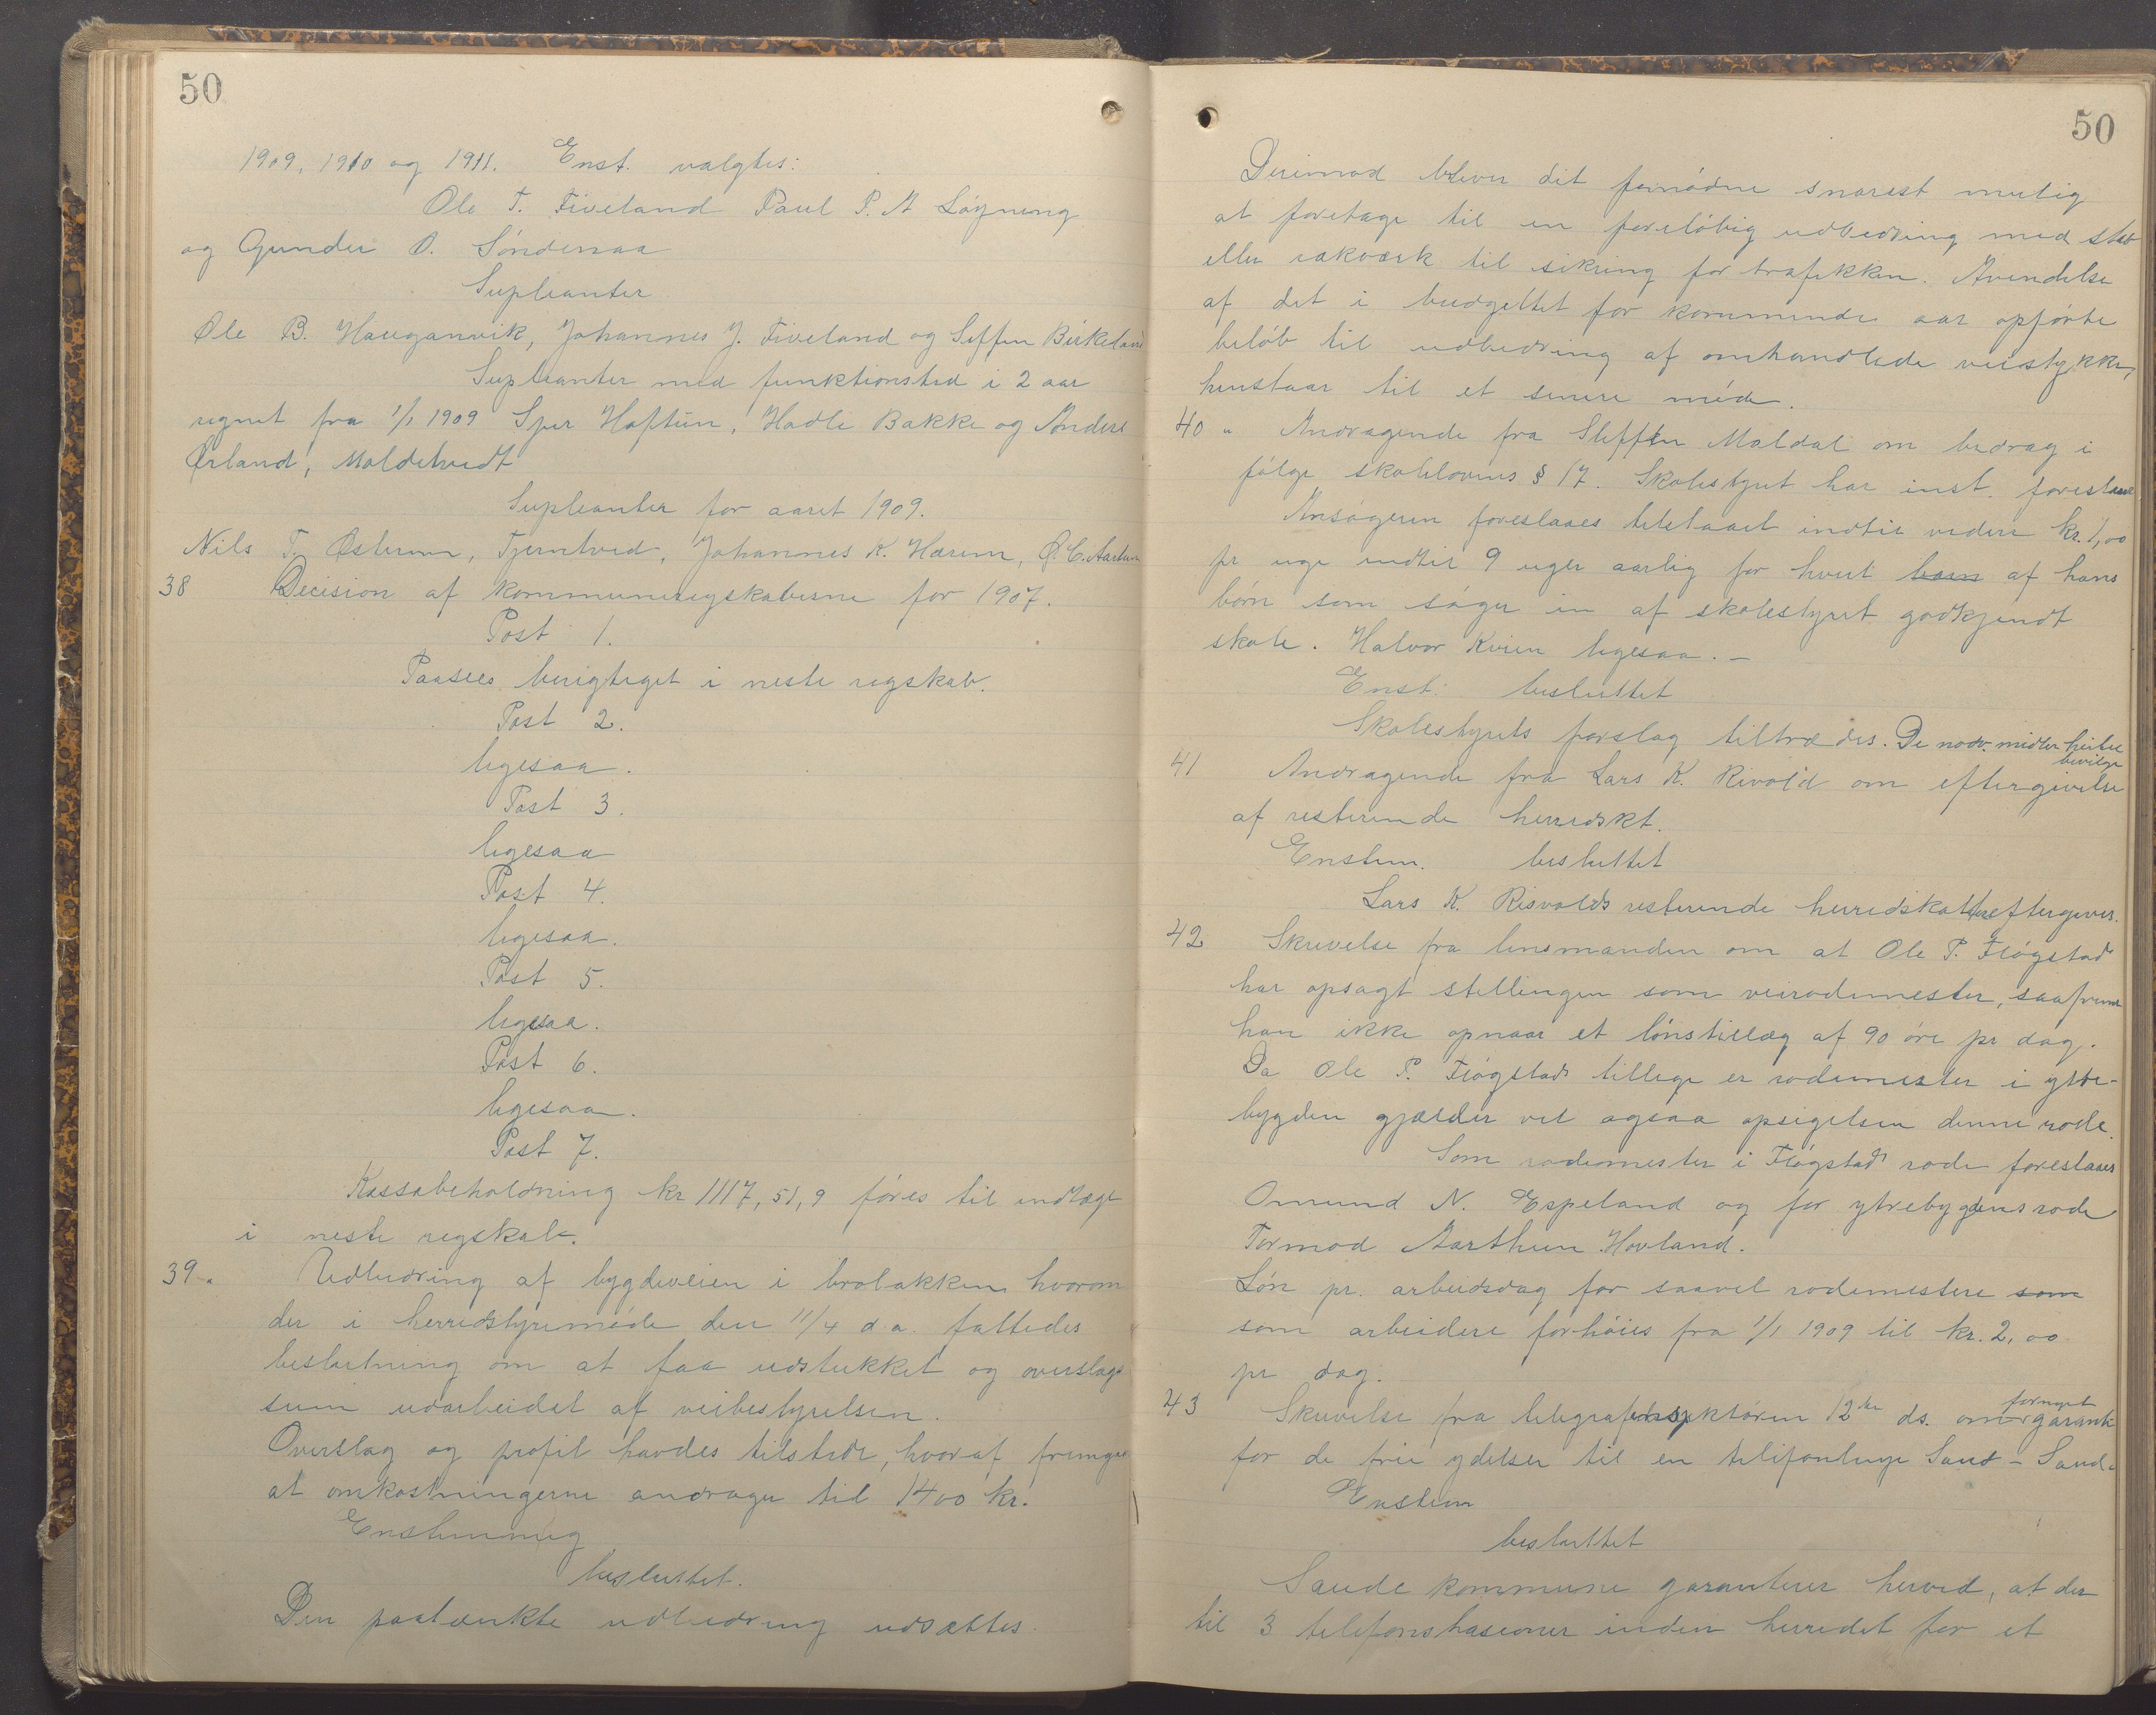 50
1909, 1910 og 1911. Enst. valgtes:
Ole T. Fiveland Paul P. A Løgning
og Gunder O. Søndenaa
Supleanter
Ole B. Hauganvik, Johannes J. Fiveland og Seffen Birkeland
Supleanter med funktionstid i 2 aar
regnet fra 1/1 1909 Sjur Haftun, Hadle Bakke og Anders
Ørland, Moldetvedt
Supleanter for aaret 1909.
Nils T. Østerm, Tjerntved, Johannes K. Harem, O. C. Aarthun
38 Decision af kommuneregskaberne for 1907.
Post 1.
Paasees berigtiget i neste regskab.
Post 2.
ligesaa.
Post 3.
ligesaa
Post 4.
ligesaa.
Post 5.
ligesaa.
Post 6.
ligesaa.
Post 7.
Kassabeholdning kr 1117,51,9 føres til indtægt
i neste regskab.
39. Udbedring af bygdeveien i brobakken hvorom
der i herredstyremøde den 11/4 d.a. fattedes
beslutning om at faa udstukket og overslags
sum udarbeidet af veibestyrelsen.
Overslag og profil havdes tilstede, hvoraf fremgaar
at omkostningerne andrager til 1400 kr.
Enstemmig
besluttet.
Den paatænkte udbedring udsættes.
50
Derimod bliver dit fornødne snarest mulig
at foretage til en foreløbig udbedring med stab
eller rækværk til sikring for trafikken. Avendelse
af det i budgettet for kommende aar opførte
beløb til udbedring af omhandlede veistykke,
henstaar til et senere møde.
40 " Andragende fra Sleffen Moldal om bedrag i
følge skolelovens § 17. Skolestyret har inst. foreslaaet
Ansøgeren foreslaaes tilstaaet indtil videre kr. 1,00
pr uge indtil 9 uger aarlig for hvert barn af hans
børn som søger in af skolestyret godkjendt
skole. Halvor Kvien ligesaa. –
Enst: besluttet
Skolestyrets forslag tiltrædes. De nødv. midler hertil
bevilge
41 Andragende fra Lars K. Rivold om eftergivelse
af resterende herredskt.
Enstem. besluttet
Lars K. Risvolds resterende herredskatter eftergives.
42 Skrivelse fra lensmanden om at Ole P. Fløgstad
har opsagt stellingen som veirodemester, saafremt
han ikke opnaar et lønstillæg af 90 øre pr dag.
Da Ole P. Fløgstad tillige er rodemester i ytre-
bygden gjælder vel ogsaa opsigelsen denne rode.
Som rodemester i Fløgstad rode foreslaaes
Omund N. Espeland og for ytrebygdens rode
Tormod Aarthun Hovland.
Løn pr. arbeidsdag for saavel rodemestere som
som arbeidere forhøies fra 1/1 1909 til kr. 2,00
pr dag.
43 Skrivelse fra telegrafinspektøren 12te ds. om fornyet garanti
for de frie ydelser til en telefonlinje Sand – Saude
Enstem
besluttet
Saude kommune garanterer herved, at der
til 3 telefonstasioner inden herredet for et